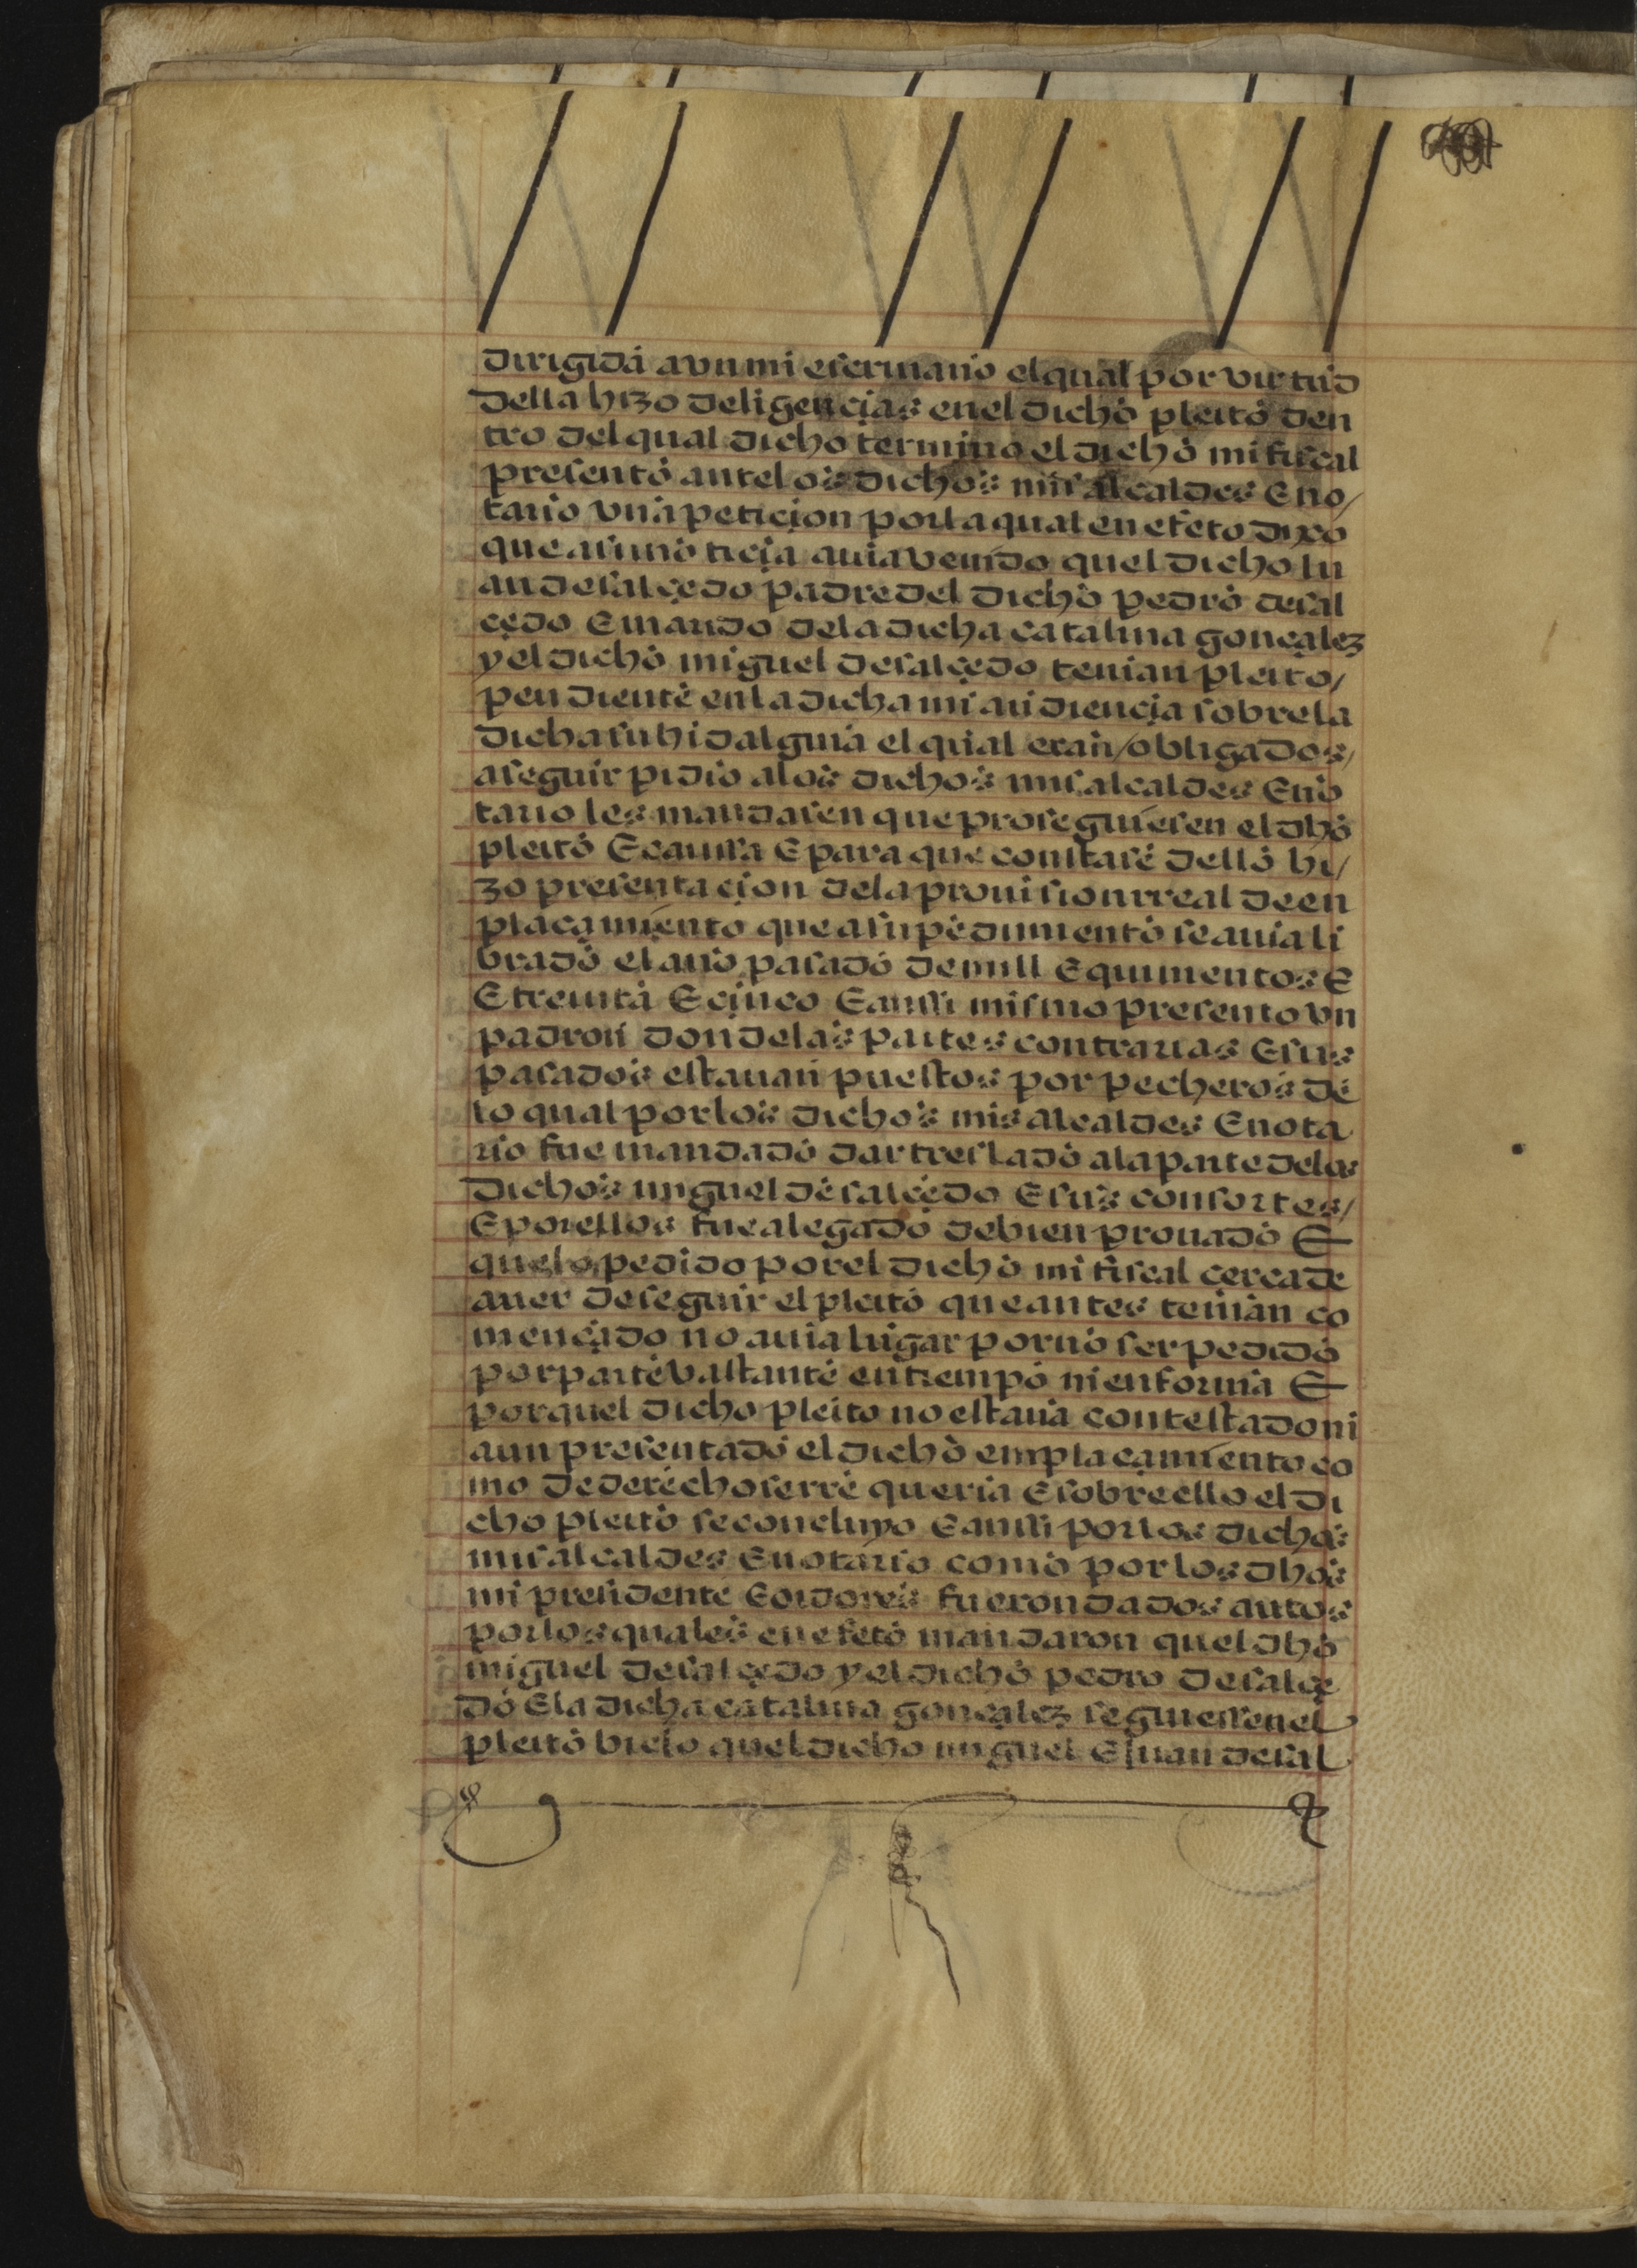 dirigida a vn mi escriuano el qual por virtud
della hizo deligençias en el dicho pleito den
tro del qual dicho termino el dicho mi fiscal
presento ante los dichos mis alcaldes E no/
tario vna petiçion por la qual en efeto dixo
que a su notiçia auia venido quel dicho Iu
an de salçedo padre del dicho pedro de sal
çedo E marido de la dicha catalina gonçalez
y el dicho miguel de salçedo tenian pleito/
pendiente en la dicha mi audiençia sobre la
dicha su hidalguia el qual eran/obligados/
a seguir pidio a los dichos mis alcaldes E no
tario les mandasen que prosiguiesen el dho
pleito E causa E para que constase dello hi/
zo presentaçion de la prouision rreal de en
plaçamiento que a su pedimiento se auia li
brado el año pasado de mill E quinientos E
E treinta E çinco E ansi mismo presento vn
padron donde las partes contrarias E sus
pasados estauan puestos por pecheros de
lo qual por los dichos mis alcaldes E nota
rio fue mandado dar treslado a la parte de los
dichos miguel de salçedo E sus consortes/
E por ellos fue alegado de bien prouado E
que lo pedido por el dicho mi fiscal cerca de
auer de seguir el pleito que antes tenian co
mençado no auia lugar por no ser pedido
por parte vastante en tiempo ni en forma E
porquel dicho pleito no estaua contestado ni
aun presentado el dicho emplaçamiento co
mo de derecho se rrequeria E sobre ello el di
cho pleito se concluyo E ansi por los dichos
mis alcaldes E notario como por los dhos
mi presidente E oidores fueron dados autos
por los quales en efeto mandaron quel dho
miguel de salçedo y el dicho pedro de salçe
do E la dicha catalina gonçalez seguiessen el
pleito biejo quel dicho miguel E juan de sal